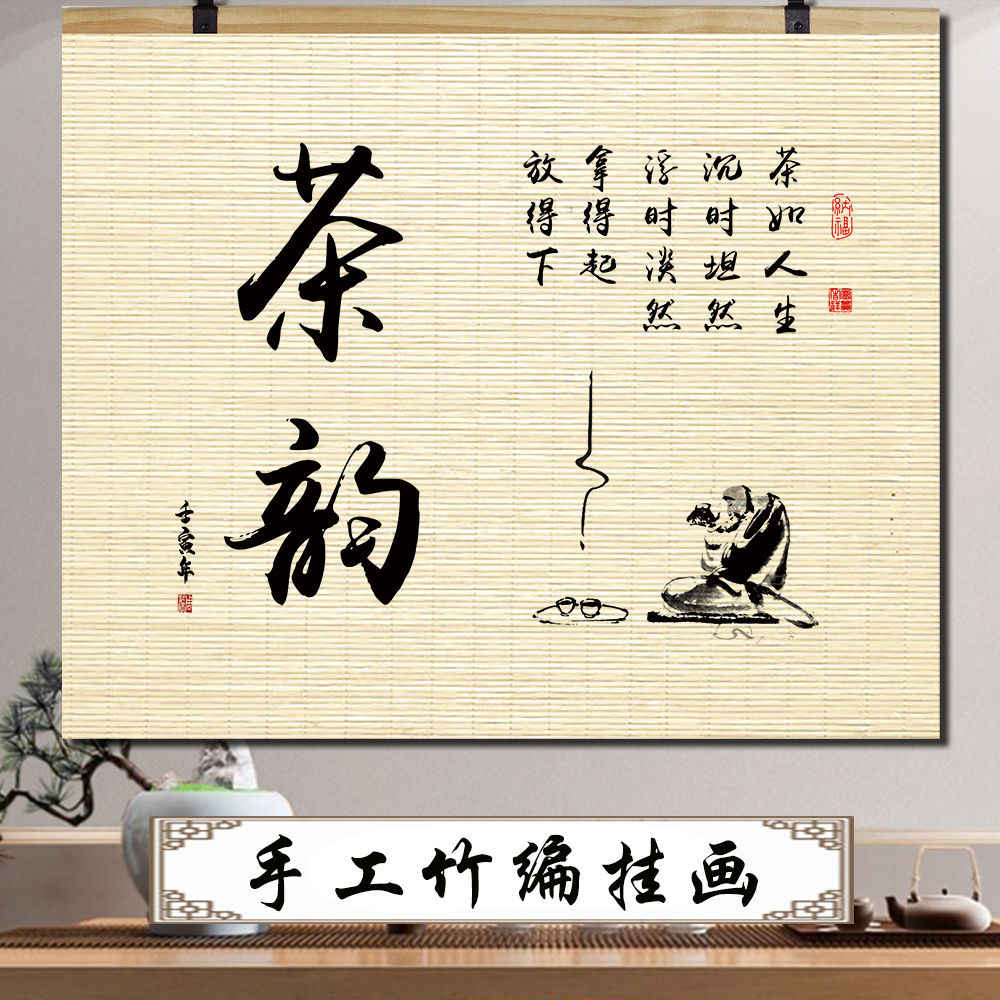 茶如人生
沉时坦然
浮时淡然
拿得起
放得下
纳福
茶韵
壬寅年
手工竹编挂画